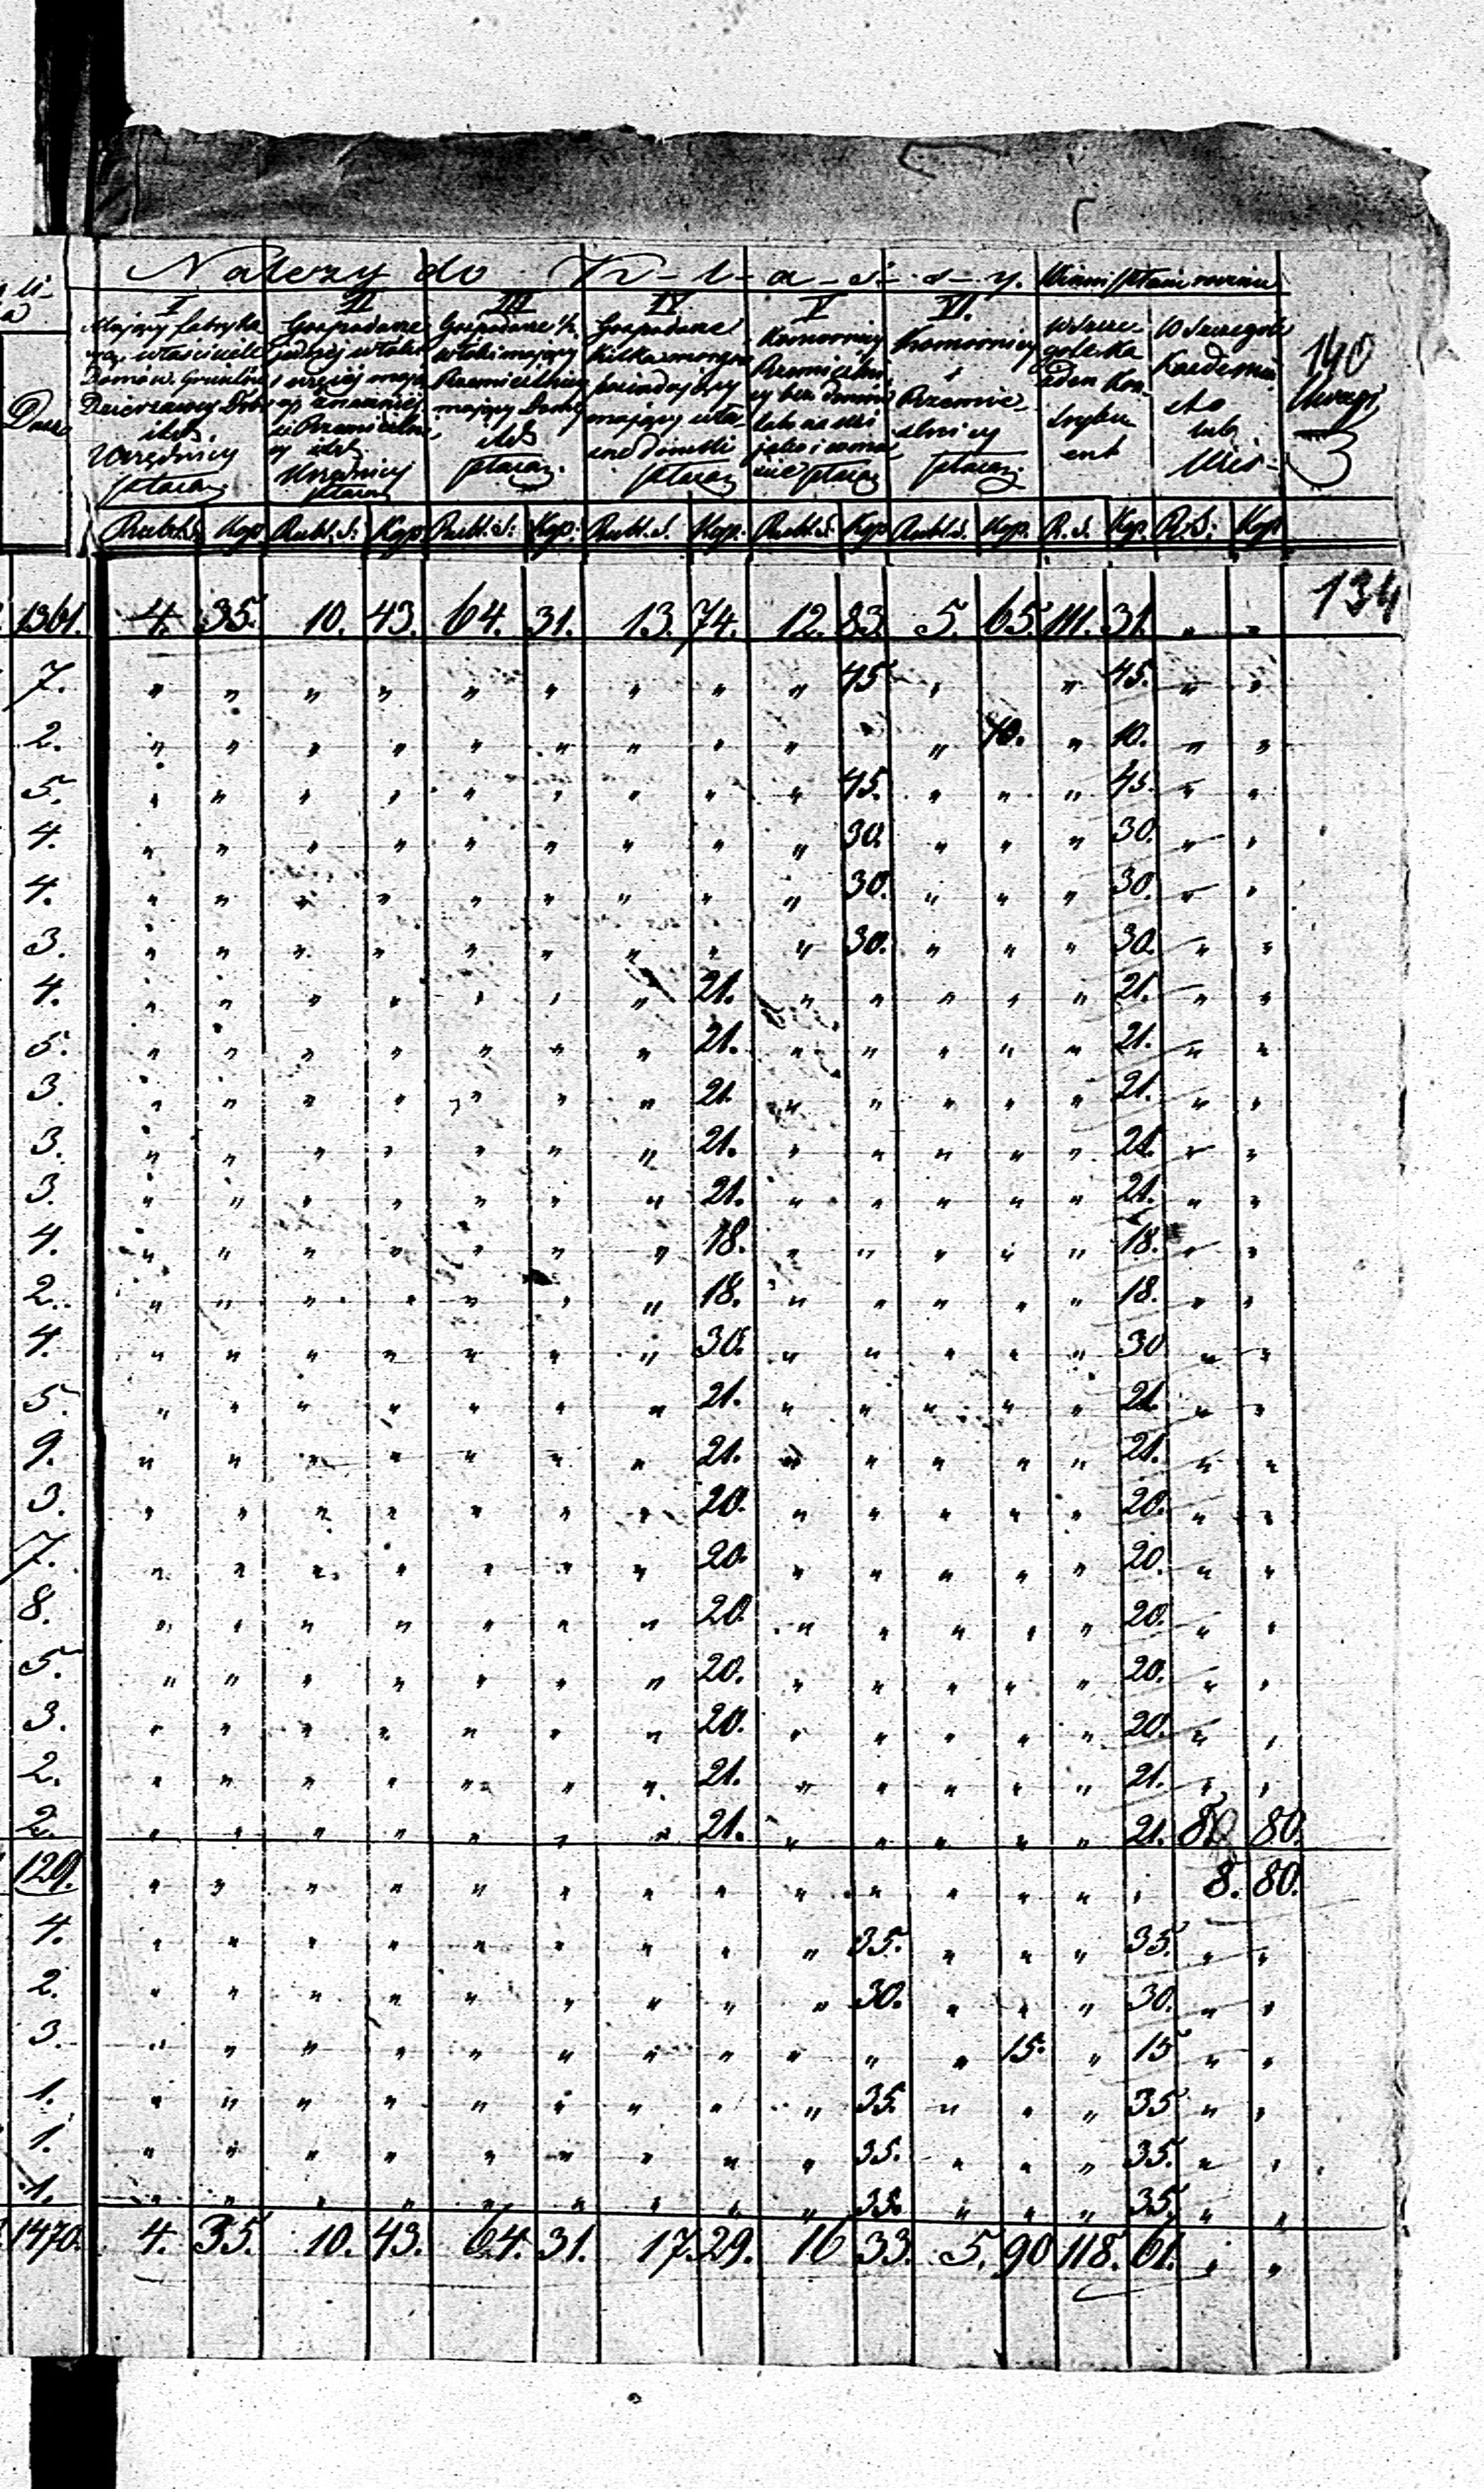 Należy do K-l-a-s-s-y. Winni płacić rocznie
I II III IV V VI.
Mający fabryka
Gospodarze
Gospodarze 1/2
Gospodarze
Komornicy
Komornicy
W Szcze
W Szczegole
140
właściciele
włóki mający
kilka morgów
i
Każdemu
Uwagi
Domów
Rzemieślnicy
posiadający
Rzemie
Dusz
Dzierżawcy Dóbr
mający Domy
mający wła
ślnicy
lub
itd.
itd.
itd.
sne domki
płacą
Urzędnicy
płacą
Urzędnicy
płacą
płacą
płacą
płacą
Rubl.S. Kop Rubl.S. Kop Rubl.S. Kop. Rubl.S. Kop. Rubl.S. Kop Rubl.S. Kop. R.S. Kop. R.S. Kop
134
1361. 4. 35. 10. 43. 64. 31. 13. 74. 12. 83. 5. 65. 111. 31. " "
7. " " " " " " " " " 45 " " 45. " "
2. " " " " " " " " " " 10. " 10. " "
5. " " " " " " " " " 45. " " " 45. " "
4. " " " " " " " " " 30. " " " 30. " "
4. " " " " " " " " " 30. " " " 30. " "
3. " " " " " " " " " 30. " " " 30. " "
4. " " " " " " " 21. " " " " " 21. " "
5. " " " " " " " 21. " " " " " 21. " "
3. " " " " " " " 21. " " " " " 21. " "
3. " " " " " " " 21. " " " " " 21. " "
3. " " " " " " " 21. " " " " " 21. " "
4. " " " " " " " 18. " " " " " 18. " "
2. " " " " " " " 18. " " " " " 18. " "
4. " " " " " " " 30. " " " " " 30 " "
5. " " " " " " " 21. " " " " " 21. " "
9. " " " " " " " 21. " " " " " 21. " "
3. " " " " " " " 20. " " " " " 20. " "
7. " " " " " " " 20. " " " " " 20. " "
8. " " " " " " " 20. " " " " " 20. " "
5. " " " " " " " 20. " " " " " 20. " "
3. " " " " " " " 20. " " " " " 20. " "
2. " " " " " " " 21. " " " " " 21. " "
2. " " " " " " " 21. " " " " " 21. 80 80.
129. " " " " " " " " " " " " " " 8. 80.
4. " " " " " " " " " 35. " " " 35. " "
2. " " " " " " " " " 30. " " " 30. " "
3. " " " " " " " " " " " 15. " 15 " "
1. " " " " " " " " " 35. " " " 35 " "
1. " " " " " " " " " 35. " " " 35. " "
1. " " " " " " " " " 35. " " " 35. " "
1470. 4. 35. 10. 43. 64. 31. 17. 29. 16 33. 5. 90 118. 61. " "